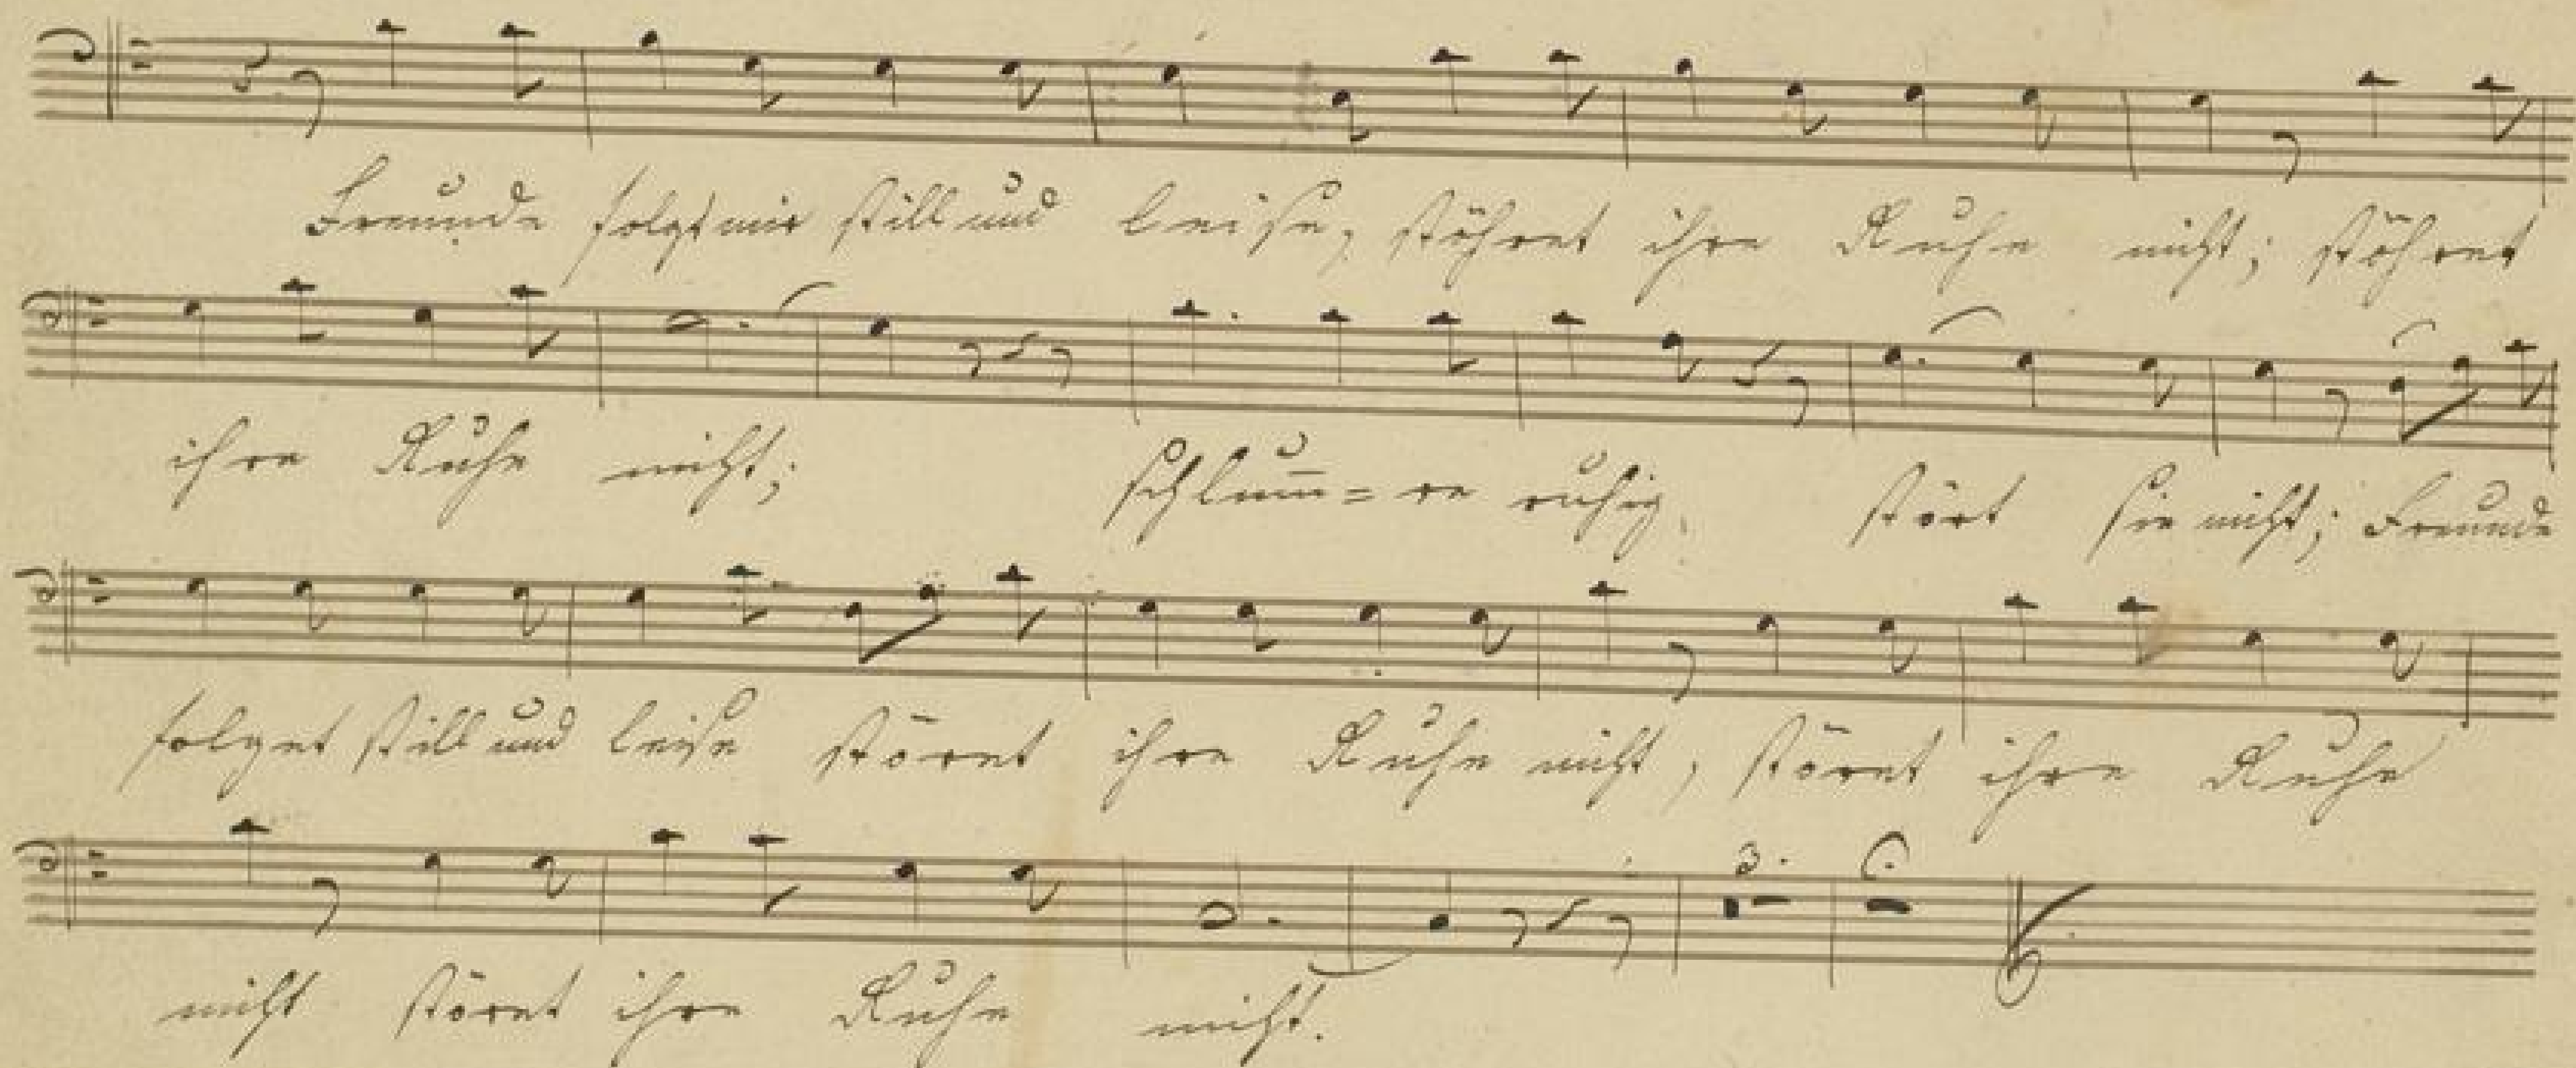 Freunde folgt mir still und leise, stöhret ihre Ruhe nicht; stöhret
ihre Ruhe nicht; schlum̅=re ruhig stört sie nicht; Freunde
folget still und leise störet ihre Ruhe nicht, störet ihre Ruhe
3. 
nicht störet ihre Ruhe nicht.